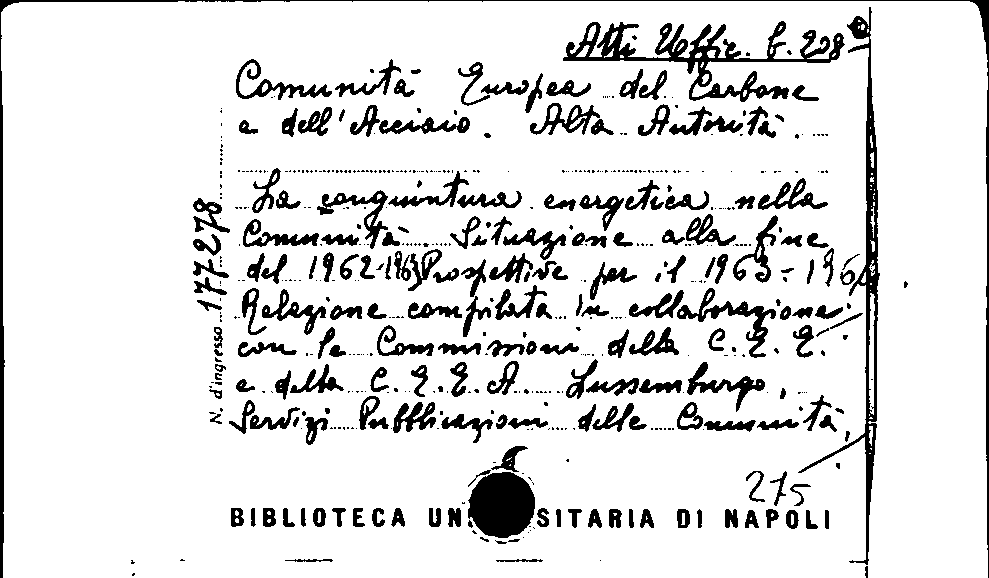 Atti Uffic. b. 228
Comunità Europea del Carbone
e dell'Acciaio. Alta Autorità.
La conguintura energetica nella
Comunità. Situazione alla fine
del 1962-1963 Prospettive per il 1963-196
Relazione compilata in collaborazione
con le Commissioni della C.E.E.
e della C.E.E.A. Lussemburgo,
Servizi Pubblicazioni delle Comunità,
275
N. d'ingresso 177278
BIBLIOTECA UN SITARIA DI NAPOLI